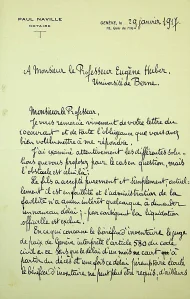 PAUL NAVILLE
NOTAIRE
GENÈVE, le 29 janvier 1917.
A Monsieur le Professeur Eugène Huber,
Université de Berne.
Monsieur le Professeur,
Je vous remercie vivement de votre lettre du
10 courant et de toute l'obligeance que vous avez
bien voulu mettre à me répondre.
J'ai examiné attentivement les différentes solu-
tions que vous proposez pour le cas en question, mais
l'obstacle est là:
Le fils a accepté purement et simplement
et l'administration de la
faillite n'a aucun intérêt quelconque à demander
un nouveau délai; par conséquent la liquidation
officielle est exclue.
En ce qui concerne le bénéfice d'inventaire le juge
de paix de Genève interprète l'article 580 du code
civil en ce sens que le délai d'un mois ne court qu'à
partir du décès et une fois ce délai
bénéfice d'inventaire ne peut plus être requis, d'ailleurs